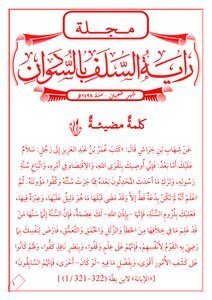 مجلة
راية السلف بالسودان
شهر شعبان سنة ١٤٣٨هـ
كلمة مضيئة
عَنْ شِهَابِ بْنِ خِرَاشٍ قَالَ: «كَتَبَ عُمَرُ بْنُ عَبْدِ الْعَزِيزِ إِلَى رَجُلٍ: سَلَامٌ
عَلَيْكَ أَمَّا بَعْدُ: فَإِنِّي أُوصِيكَ بِتَقْوَى اللهِ، وَالِاقْتِصَادِ فِي أَمْرِهِ، وَاتِّبَاعِ سُنَّةِ
رَسُولِهِ، وَتَرْكِ مَا أَحْدَثَ الْمُحْدِثُونَ بَعْدَهُ مِمَّا جَرَتْ سُنَّتُهُ وَكُفُوا مُؤْنَتَهُ. ثُمَّ
اعْلَمْ أَنَّهُ لَمْ تَكُنْ بِدْعَةٌ قَطُّ إِلَّا وَقَدْ مَضَى قَبْلَهَا مَا هُوَ دَلِيلٌ عَلَيْهَا، وَعِبْرَةٌ فِيهَا،
فَعَلَيْكَ بِلُزُومِ السُّنَّةِ، فَإِنَّهَا –بِإِذْنِ اللهِ– لَكَ عِصْمَةٌ، فَإِنَّ السُّنَّةَ إِنَّمَا سَنَّهَا مَنْ
قَدْ عَلِمَ مَا فِي خِلَافِهَا مِنَ الْخَطَأِ وَالزَّلَلِ وَالْحُمْقِ وَالتَّعَمُّقِ، فَارْضَ لِنَفْسِكَ بِمَا
رَضِيَ بِهِ الْقَوْمُ لِأَنْفُسِهِمْ، فَإِنَّهُمْ عَلَى عِلْمٍ وَقَفُوا، وَبِبَصَرٍ نَافِذٍ كَفُّوا، وَلَهُمْ كَانُوا
عَلَى كَشْفِ الْأُمُورِ أَقْوَى، وَبِفَضْلٍ مَا فِيهِ –لَوْ كَانَ– أَحْرَى، فَإِنَّهُمُ السَّابِقُونَ»
(«الإبانة» لابن بطة (322-321 / 1)